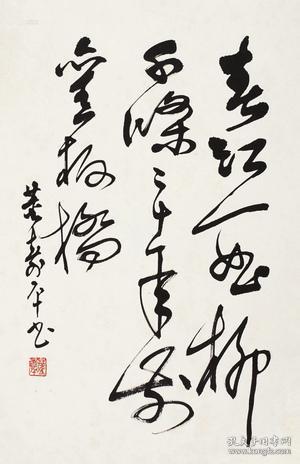 春江一曲柳
千條二十年前
舊板橋
董壽平书
孔夫子旧书网